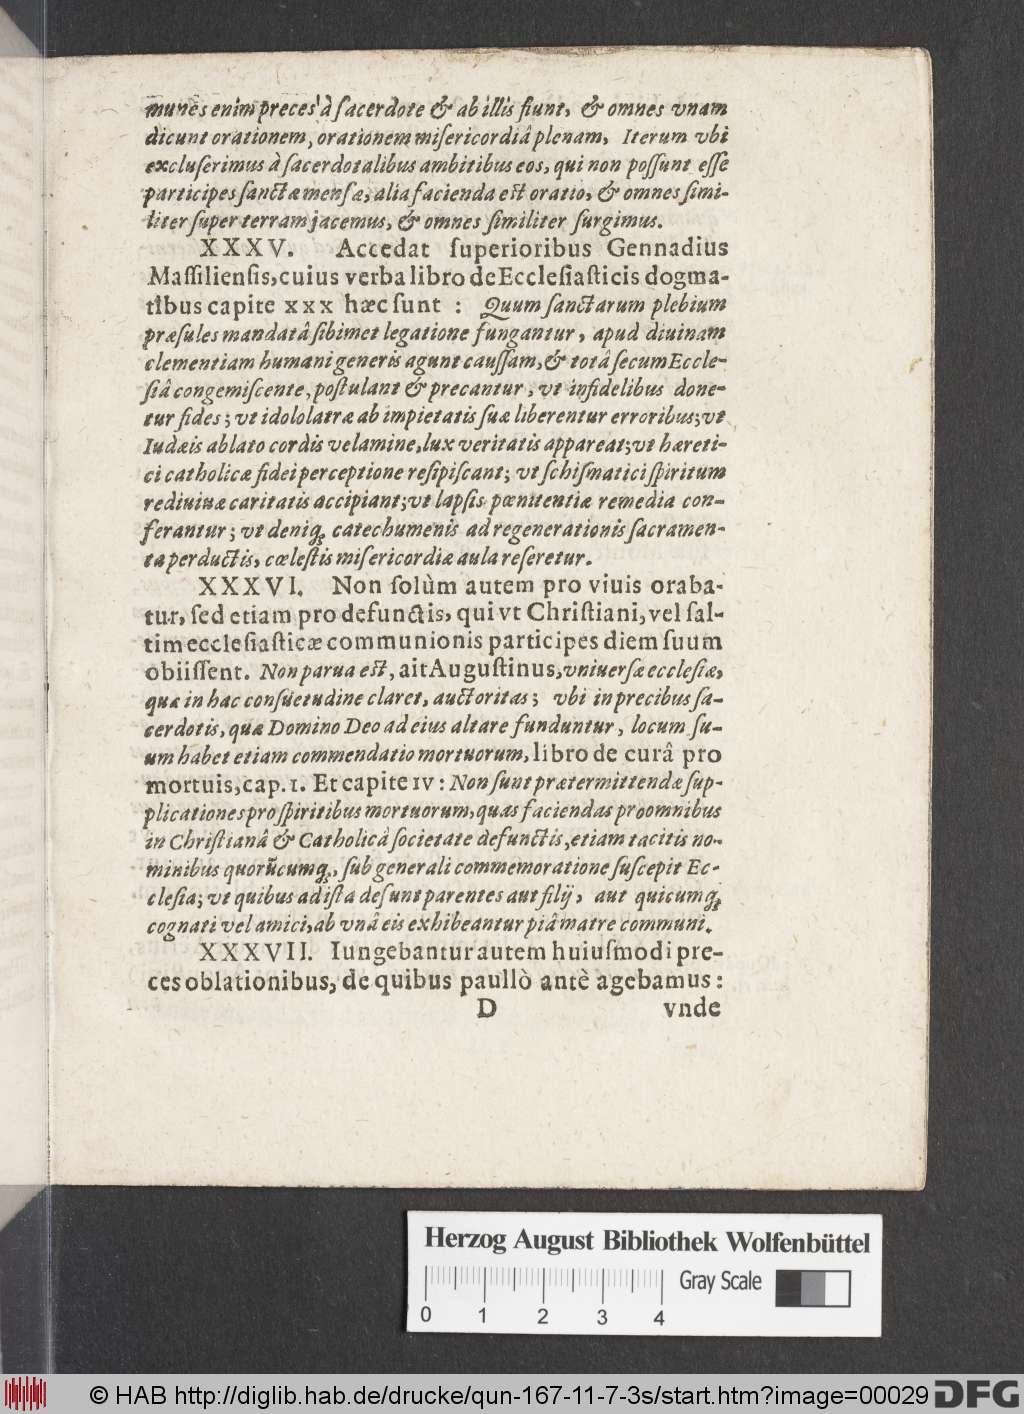 munes enim preces à sacerdote & ab illis fiunt, & omnes vnam
dicunt orationem, orationem misericordiâ plenam, Iterum vbi
excluserimus à sacerdotalibus ambitibus eos, qui non possunt esse
participes sanctæ mensæ, alia facienda est oratio, & omnes simi-
liter super terram jacemus, & omnes similiter surgimus.
XXXV. Accedat superioribus Gennadius
Massiliensis, cuius verba libro de Ecclesiasticis dogma-
tibus capite xxx hæc sunt : Quum sanctarum plebium
præsules mandatâ sibimet legatione fungantur, apud diuinam
clementiam humani generis agunt caussam, & totâ secum Eccle-
siâ congemiscente, postulant & precantur, vt infidelibus done-
tur fides; vt idololatræ ab impietatis suæ liberentur erroribus; vt
Iudæis ablato cordis velamine, lux veritatis appareat; vt hæreti-
ci catholicæ fidei perceptione resipiscant; vt schismatici spiritum
rediuiuæ caritatis accipiant; vt lapsis pœnitentiæ remedia con-
ferantur; vt deniq; catechumenis ad regenerationis sacramen-
ta perductis, cœlestis misericordiæ aula reseretur.
XXXVI. Non solùm autem pro viuis oraba-
tur, sed etiam pro defunctis, qui vt Christiani, vel sal-
tim ecclesiasticæ communionis participes diem suum
obiissent. Non parua est, ait Augustinus, vniuersæ ecclesiæ,
quæ in hac consuetudine claret, auctoritas; vbi in precibus sa-
cerdotis, quæ Domino Deo ad eius altare funduntur, locum su-
um habet etiam commendatio mortuorum, libro de curâ pro
mortuis, cap. 1. Et capite IV: Non sunt prætermittendæ sup-
plicationes pro spiritibus mortuorum, quas faciendas pro omnibus
in Christianâ & Catholicâ societate defunctis, etiam tacitis no-
minibus quorũcumq;, sub generali commemoratione suscepit Ec-
clesia; vt quibus ad ista desunt parentes aut filij, aut quicumq;
cognati vel amici, ab vnâ eis exhibeantur piâ matre communi.
XXXVII. Iungebantur autem huiusmodi pre-
ces oblationibus, de quibus paullò antè agebamus:
D vnde
Herzog August Bibliothek Wolfenbüttel
Gray Scale
0 1 2 3 4
© HAB http://diglib.hab.de/drucke/qun-167-11-7-3s/start.htm?image=00029 DFG